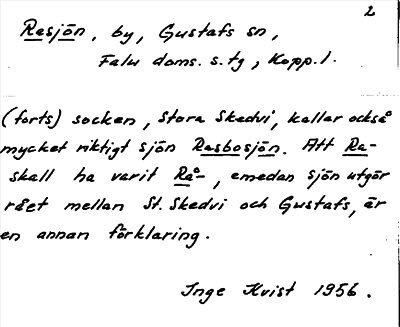 2
Rasjön, by, Gustafs sn,
Falu doms. s. tg, Kopp. l.
(forts) socken, Stora Skedvi, kallar också
mycket riktigt sjön Rasbosjön. Att Ra-
skall ha varit Rå-, emedan sjön utgör
rået mellan St. Skedvi och Gustafs, är
en annan förklaring.
Inge Kvist 1956.